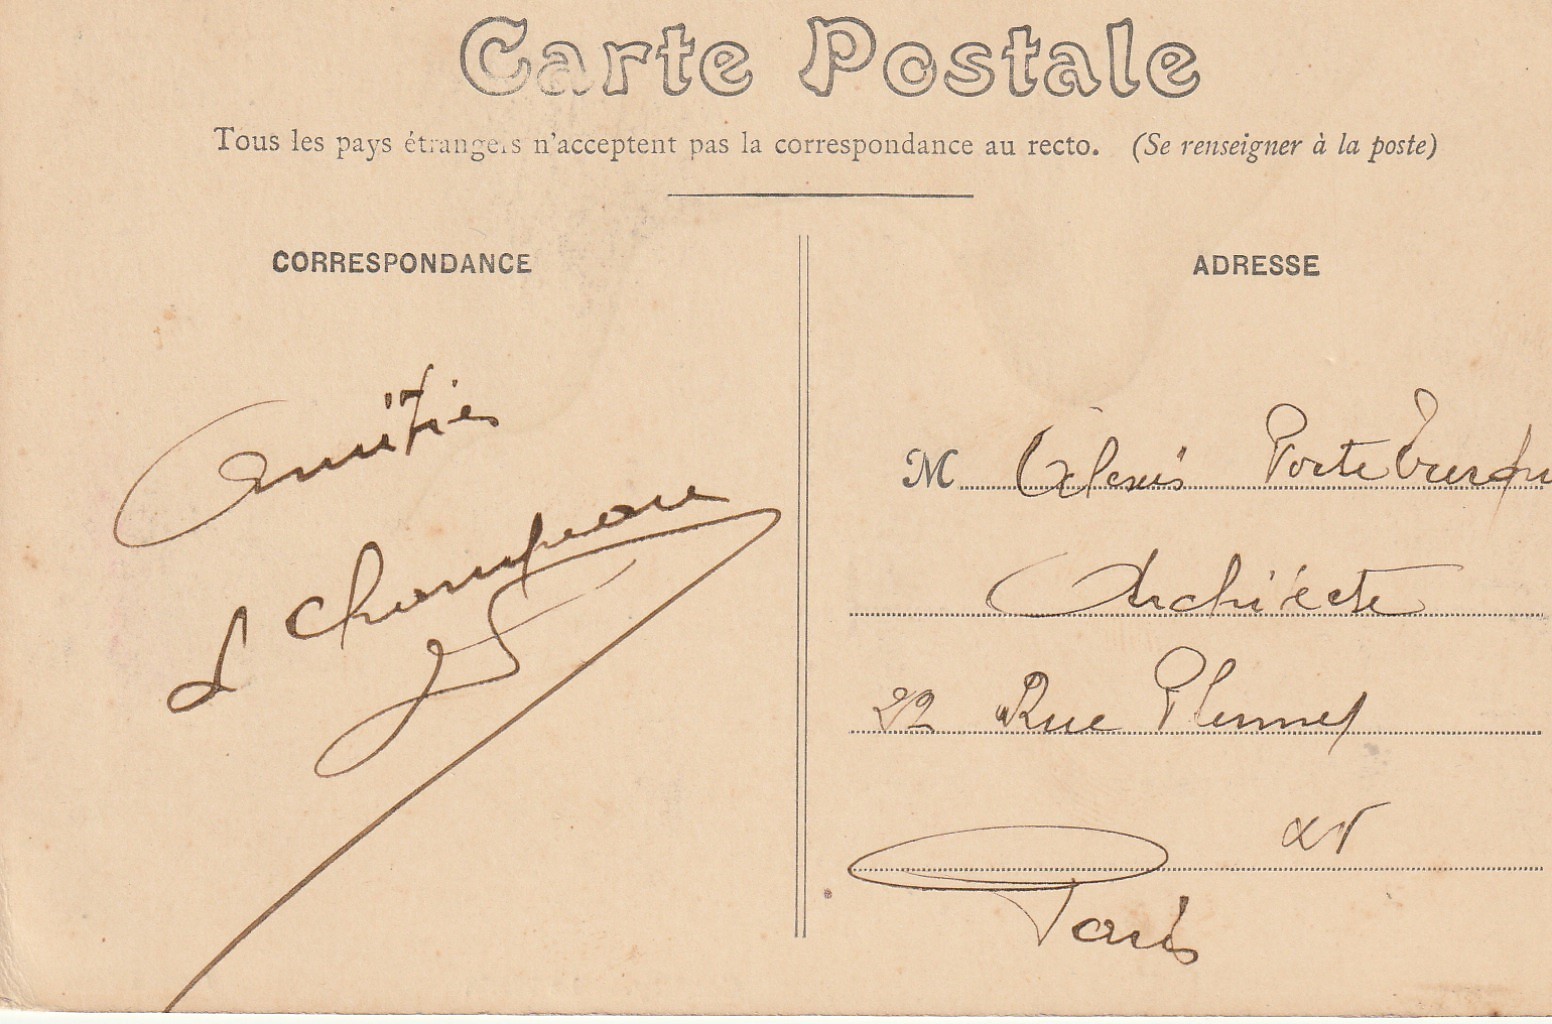 Carte Postale
Tous les pays étrangers n'acceptent pas la correspondance au recto. (Se renseigner à la poste)
CORRESPONDANCE
ADRESSE
Amitiés
L Champeau
M Alexis
Architecte
22 Rue Plumet
XV
Paris